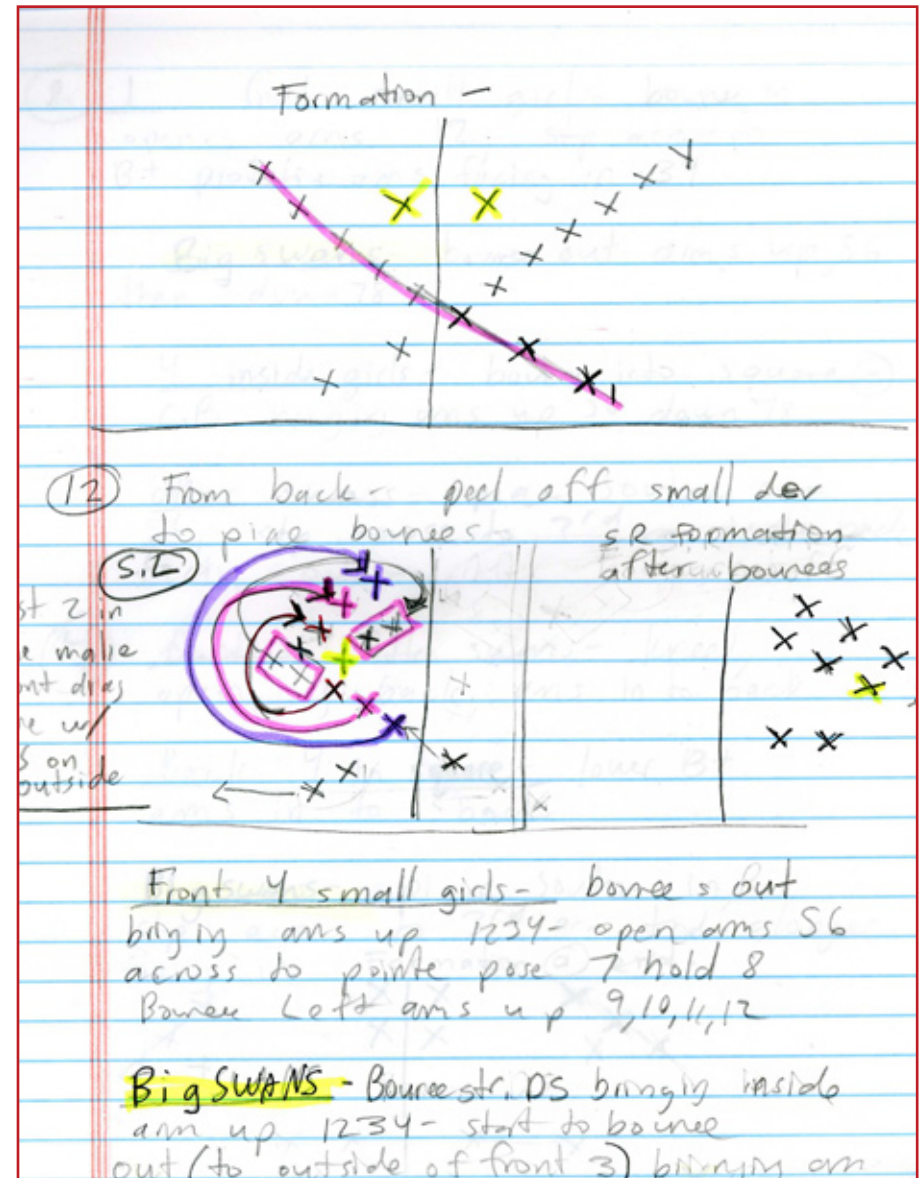 Formation -
(12) From back - peel off small dev
to pige bourees to
SR Formation
after bourees
S.L
st 2 in
e make
nt diag
e w/
s on
outside
Front 4 small girls - bouree s out
bringing ams up 1234 - open arms 56
across to pointe pose 7 hold 8
Bouree Left arms up 9,10,11,12
Big SWANS - Bouree str. DS bringing inside
arm up 1234 - start to bouree
out (to outside of front 3) bringing arm